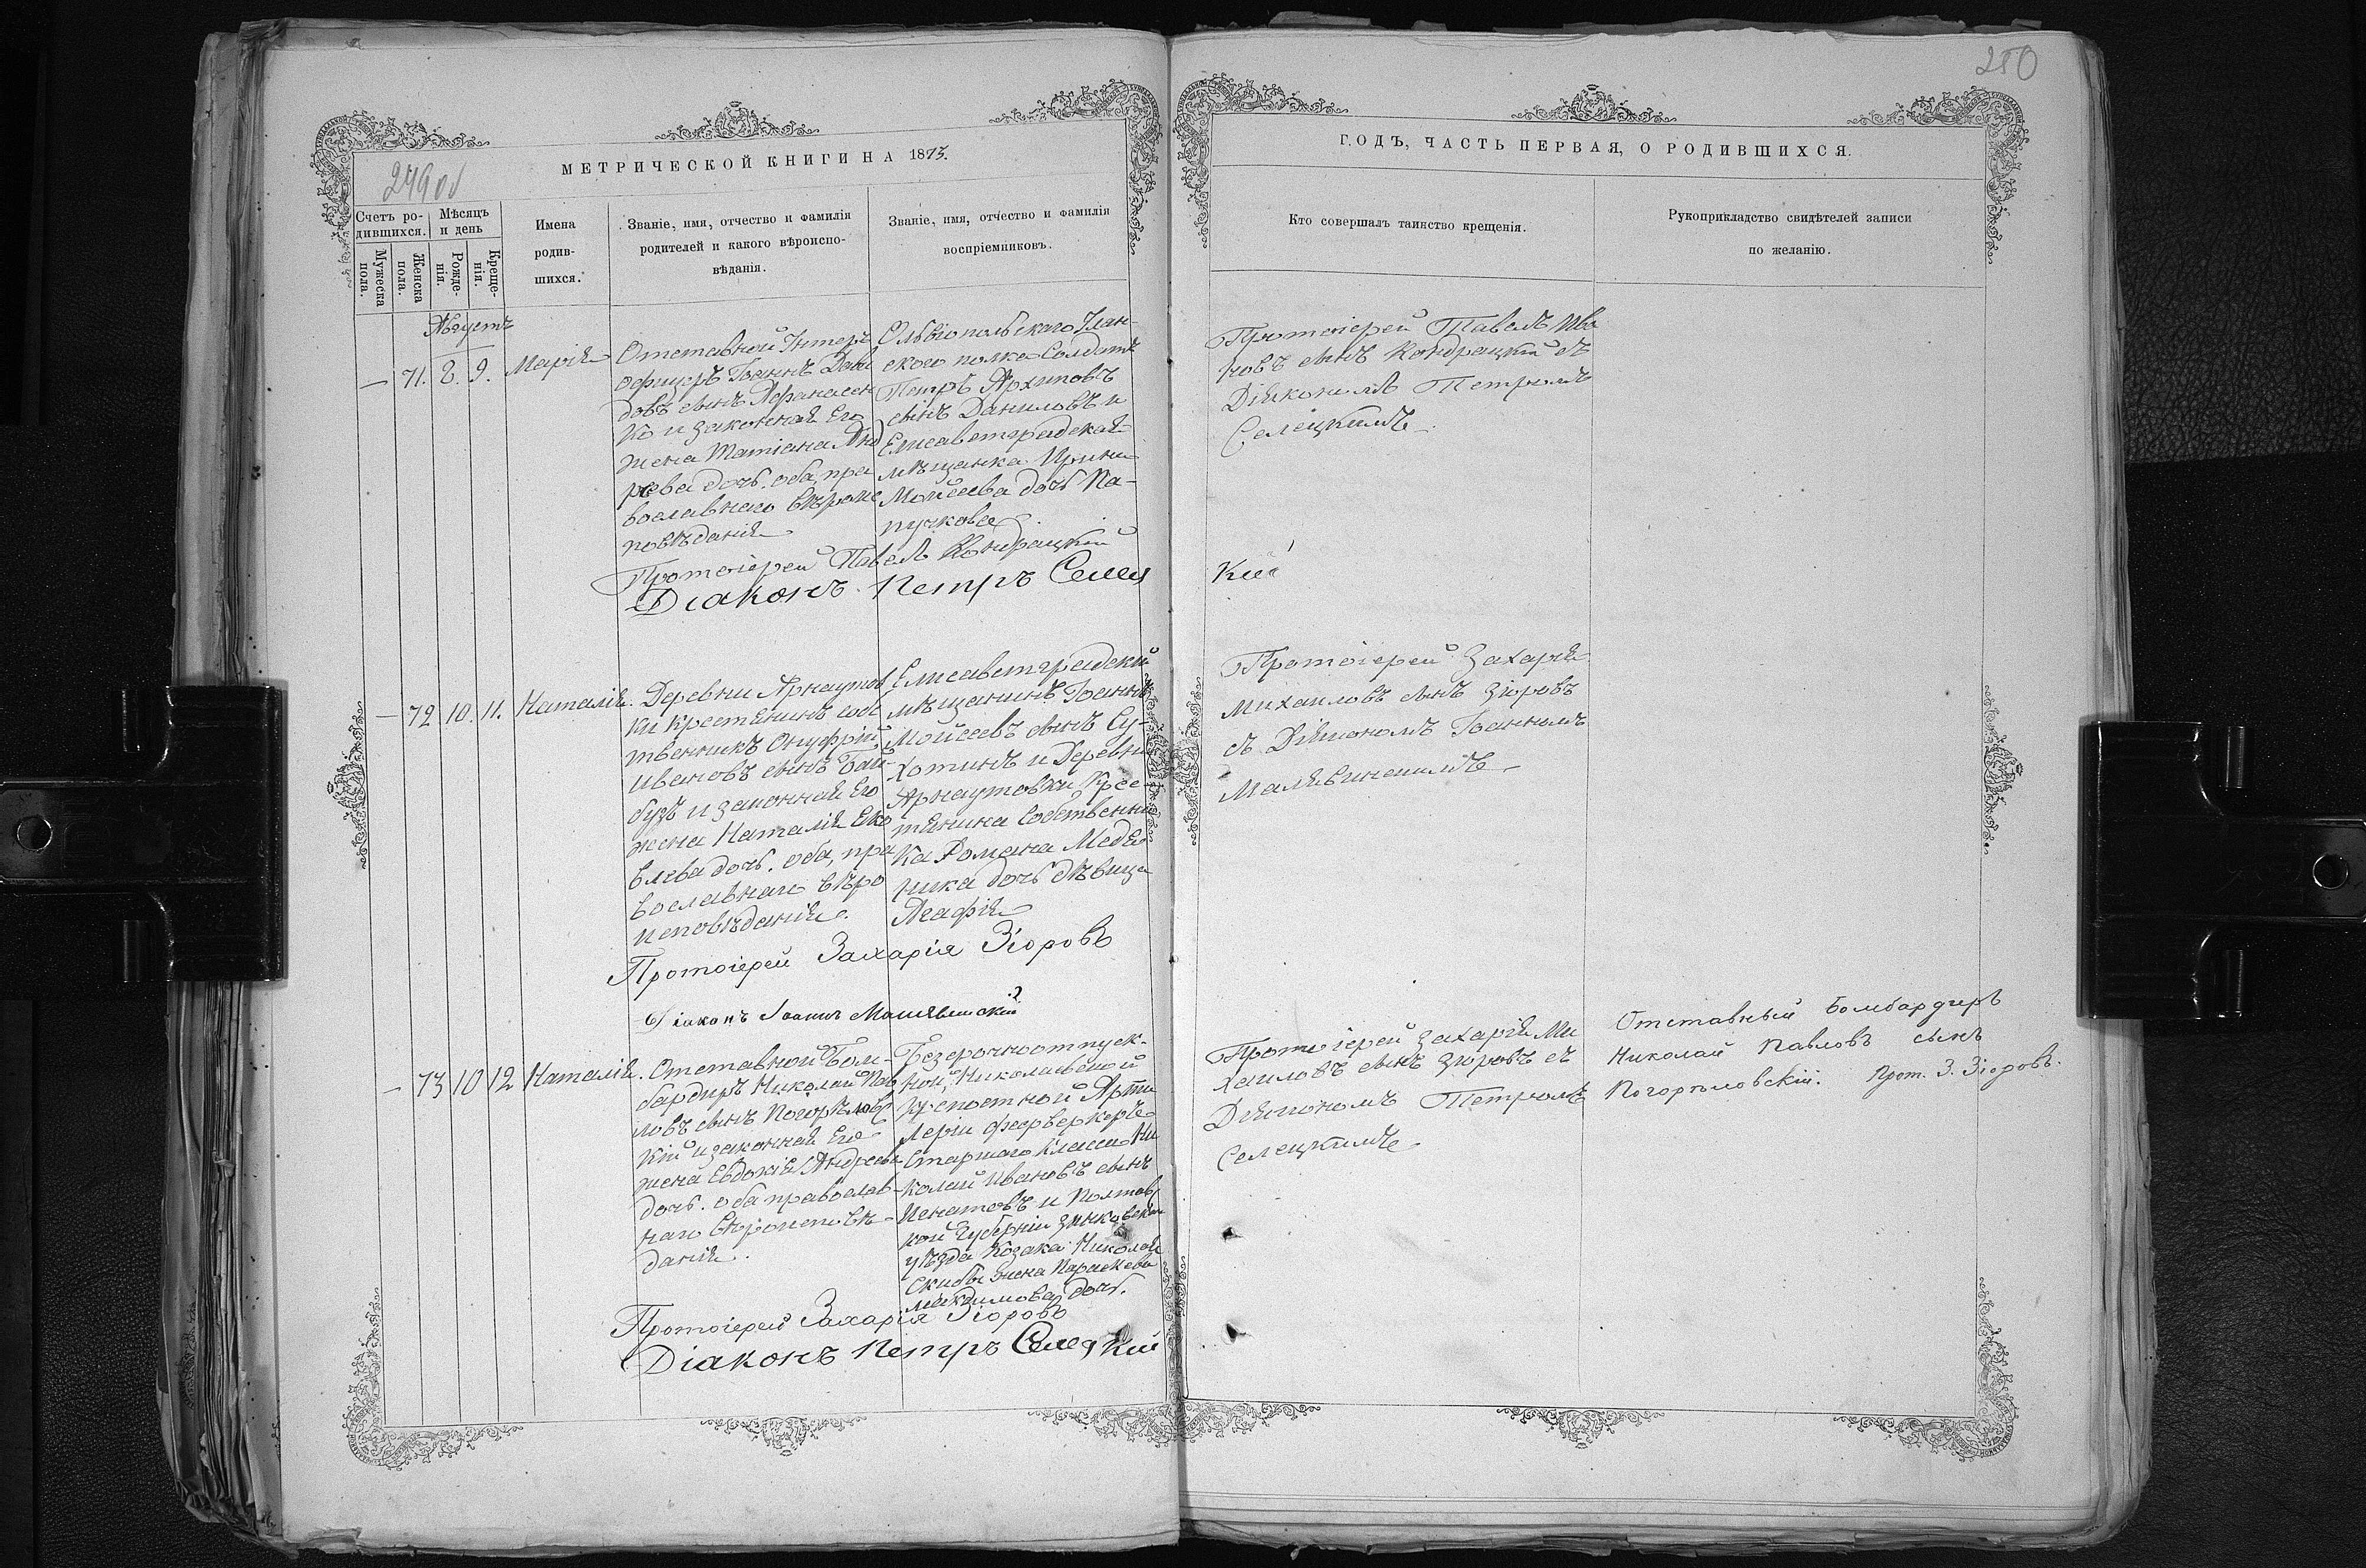 249об
МЕТРИЧЕСКОЙ КНИГИ НА 1875.
Счетъ ро-
дившихся.
Мѣсяцъ
и день
Мужеска
пола.
Женска
пола.
Рожде-
нія.
Креще-
нія.
Имена
родив-
шихся.
Званіе, имя, отчество и фамилія
родителей и какого вѣроиспо-
вѣданія.
Званіе, имя, отчество и фамилія
воспріемниковъ.
Августъ
— 71. 8. 9. Марія
Отставной Унтеръ
офицеръ Іоаннъ Дави
довъ сынъ Афанасен
ко и законная Его
жена Татіана Анд
реева дочь. оба, пра
вославнаго вѣроис
повѣданія
Ольвіопольскаго Улан-
скаго полка Солдатъ
Петръ Архиповъ
сынъ Даниловъ и
Елисаветградская
мѣщанка Ирина
Моисеева дочь Па-
пучкова
Протоіерей Павелъ Кондрацкій
Діаконъ Петръ Селец
— 72 10. 11. Наталія.
Деревни Арнаутов
ки крестьянинъ собс
твенникъ Онуфрій
Ивановъ сынъ Бай-
бузъ и законная Его
жена Наталія Яко
влева дочь. оба, пра
вославнаго вѣро
исповѣданія.
Елисаветградскій
мѣщанинъ Іоаннъ
Моисеевъ сынъ Су-
хотинъ и Деревни
Арнаутовки Крес-
тьянина Собственни
ка Романа Медя
ника дочь дѣвица
Агафія
Протоіерей Захарія Зіоровъ
Діаконъ Іоаннъ Малявинскій
— 73 10 12 Наталія.
Отставной Бом-
бардиръ Николай Пав
ловъ сынъ Погорѣловс
кій и законная Его
жена Евдокія Андреева
дочь. оба православ-
наго вѣроисповѣ-
данія.
Безсрочноотпуск-
ной, Николаевской
Крѣпостной Арти
леріи фейерверкеръ
Старшаго Класса Ни
колай Ивановъ сынъ
Игнатовъ и Полтавс
кой Губерніи Зѣньковскаго
уѣзда Козака Николая
Скибы жена Параскева
Максимова дочь.
Протоіерей Захарія Зіоровъ
Діаконъ Петръ Селецкій
250
ГОДЪ, ЧАСТЬ ПЕРВАЯ, О РОДИВШИХСЯ.
Кто совершалъ таинство крещенія.
Рукоприкладство свидѣтелей записи
по желанію.
Протоіерей Павелъ Ива
новъ сынъ Кондрацкій съ
Діякономъ Петромъ
Селецкимъ.
кій
Протоіерей Захарія
Михаиловъ сынъ Зіоровъ
съ Діякономъ Іоанномъ
Малявинскимъ
Протоіерей Захарія Ми
хаиловъ сынъ Зіоровъ съ
Діякономъ Петромъ
Селецкимъ
Отставный Бомбардиръ
Николай Павловъ сынъ
Погорѣловскій. Прот. З. Зіоровъ.